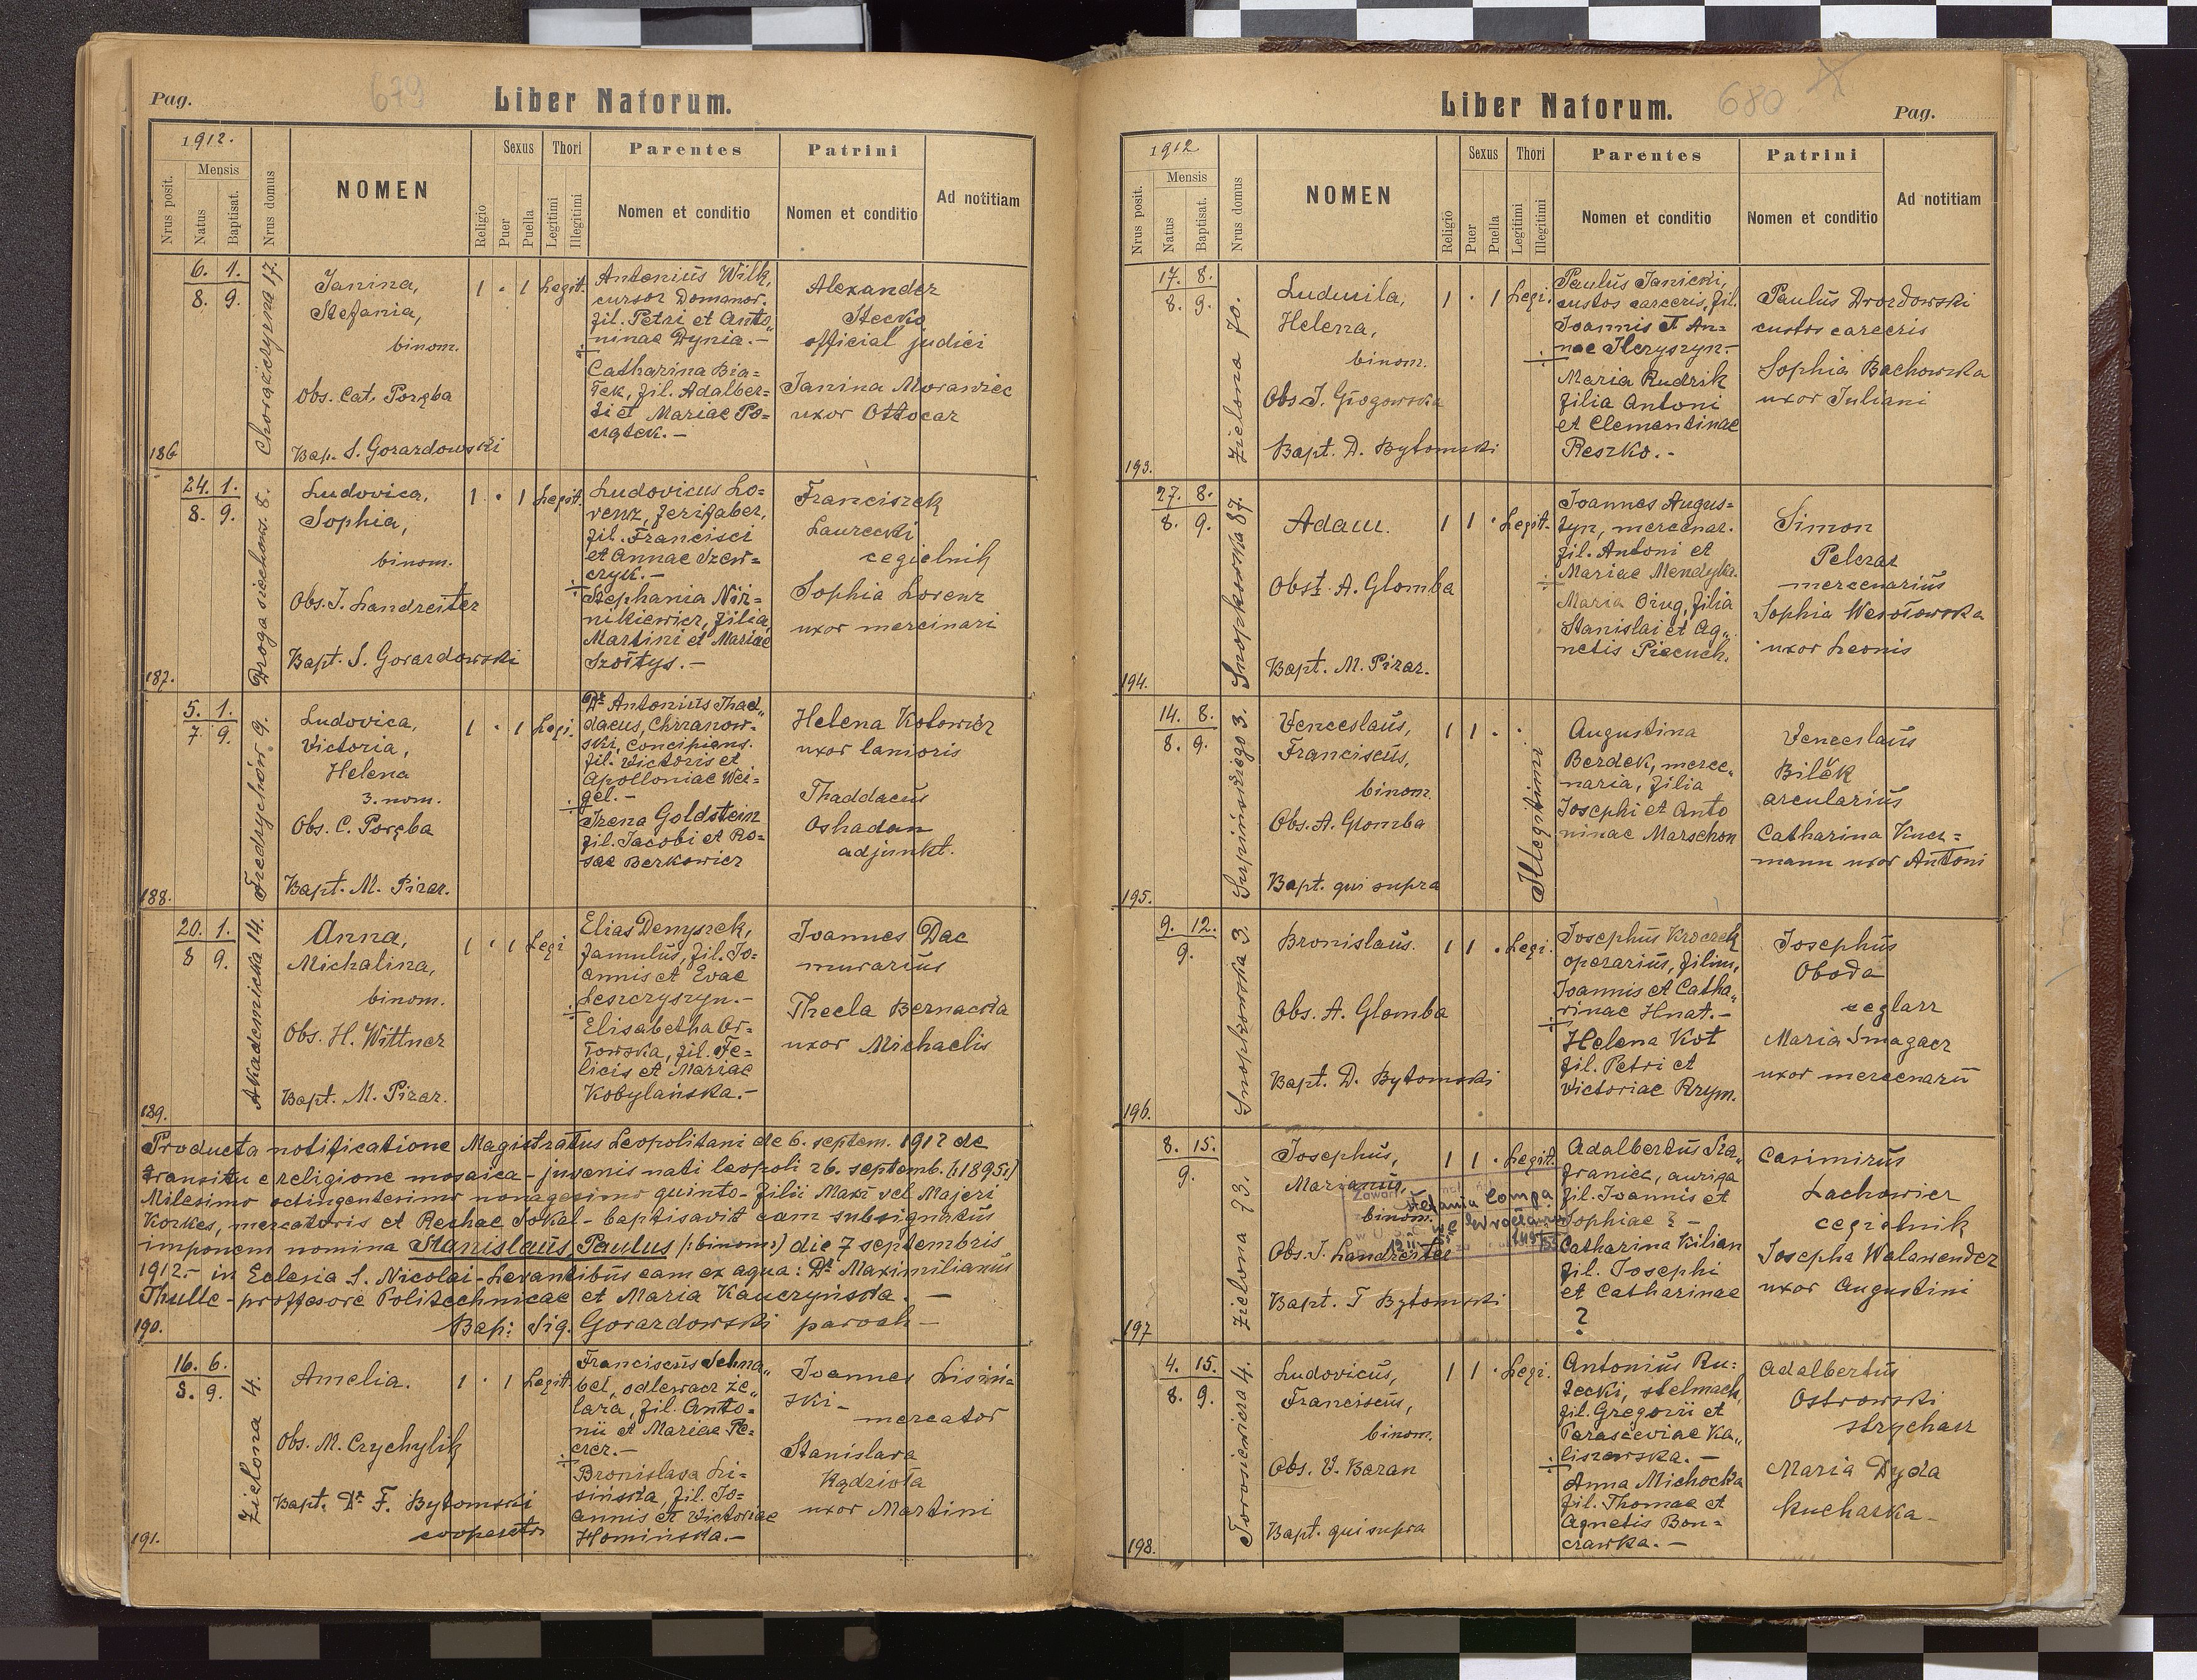 Pag.
679
Liber Natorum.
1912.
Nrus posit.
Mensis
Natus
Baptisat.
Nrus domus
NOMEN
Religio
Sexus
Puer
Puella
Thori
Legitimi
Illegitimi
Parentes
Nomen et conditio
Patrini
Nomen et conditio
Ad notitiam
186
6. 1.
8. 9.
Chorążczyzna 17.
Janina,
Stefania,
binom.
Obs. Cat. Porąba
Bap. S. Gorazdowski
1 . 1 Legit.
Antonius Wilk,
cursor Domanor.
fil. Petri et Anto„
ninae Dynia.-
Catharina Bia=
łek, fil. Adalber=
ti et Mariae Po=
czątek.-
Alexander
Stecko
official judici
Janina Morawiec
uxor Ottocar
187.
24. 1.
8. 9.
Droga siechows. 8.
Ludovica,
Sophia,
binom.
Obs. J. Landreiter
Bapt. S. Gorazdowski
1 . 1 Legit.
Ludovicus Lo=
renz, ferifaber,
fil. Francisci
et Annae Szew=
czyk.-
Stephania Nir=
nikiewicz, filia
Martini et Mariae
Szołtys.-
Franciszek
Laurecki
cegielnik
Sophia Lorenz
uxor mercinari
188.
5. 1.
7. 9.
Fredrychów 9.
Ludovica,
Victoria,
Helena
3. nom.
Obs. C. Porąba
Bapt. M. Pizar.
1 . 1 Legi.
Dr Antonius Thad„
daeus, Chrzanow=
ski, Concipians.
fil. Victoris et
Apolloniae Wei=
gel.-
Irena Goldstein
fil. Jacobi et Ro=
sae Berkowicz
Helena Kotowicz
uxor lanioris
Thaddaeus
Oshadan
adjunkt.
189.
20. 1.
8 9.
Akademicka 14.
Anna,
Michalina,
binom.
Obs. H. Wittner
Bapt. M. Pizar.
1 . 1 Legi
Elias Demyszek,
famulus, fil. Jo=
annis et Evae
Leszczyszyn.-
Elisabetha Or=
łowska, fil. Fe=
licis et Mariae
Kobylańska.-
Joannes Dac
murarius
Thecla Bernacka
uxor Michaelis
Producta notificatione Magistratus Leopolitani de 6. septem. 1912 de
transitu e religione mosaica - juvenis nati leopoli 26. septemb. (:1895:)
Milesimo octingentesimo nonagesimo quinto - filii Maxi vel Majeri
Korkes, mercatoris et Rechae Sokal - baptisavit eam subsignatus
imponem nomina Stanislaus, Paulus (:binom:) die 7 septembris
1912.- in Eclesia S. Nicolai - Levantibus eam ex aqua: Dr Maximilianus
Thulle - proffesore Politechnicae et Maria Kauczyńska. -
190.
Bap: Sig. Gorazdowski paroch -
191.
16. 6.
8. 9.
Zielona 4.
Amelia.
Obs. M. Czychylik
Bapt. Dr F. Bytomski
cooperator
1 . 1 Legit.
Franciscus Schna„
bel, odlewacz że„
laza, fil. Anto=
nii et Mariae Pe=
czer.-
Bronislava Li=
sińska, fil. Jo=
annis et Victoriae
Homińska.-
Joannes Lisiń=
ski -
mercator
Stanislava
Kądzioła
uxor Martini
Liber Natorum.
680
Pag.
1912
Nrus posit.
Mensis
Natus
Baptisat.
Nrus domus
NOMEN
Religio
Sexus
Puer
Puella
Thori
Legitimi
Illegitimi
Parentes
Nomen et conditio
Patrini
Nomen et conditio
Ad notitiam
193.
17. 8.
8. 9.
Zielona 70.
Ludmila,
Helena,
binom.
Obs J. Głogowska
Bapt. D. Bytomski
1 . 1 Legi.
Paulus Janicki,
custos carceris, fil.
Joannis et An=
nae Ilczyszyn.-
Maria Rudzik
filia Antoni
et Clementinae
Reszko.-
Paulus Drozdowski
custos carceris
Sophia Bachowska
uxor Juliani
194.
27. 8.
8. 9.
Snopkowska 87.
Adam.
Obst. A. Glomba
Bapt. M. Pizar.
1 1 . Legit.
Joannes Augus=
tyn, mercenar.
fil. Antoni et
Mariae Mendyka.
Maria Oiug, filia
Stanislai et Ag„
netis Piecuch.
Simon
Pelczar
mercenarius
Sophia Wesołowska
uxor Leonis
195.
14. 8.
8. 9.
Supińskiego 3.
Venceslaus,
Franciscus,
binom.
Obs. A. Glomba
Bapt. qui supra
1 1 . .
Illegitimi
Augustina
Berdek, merce„
naria, filia
Josephi et Anto
ninae Marschon
Venceslaus
Bilék
arcularius
Catharina Kuer=
mann uxor Antoni
196.
9. 12.
9.
Snopkowska 3.
Bronislaus.
Obs. A. Glomba
Bapt. D. Bytomski
1 1 . Legi.
Josephus Kroczek
operarius, filius,
Joannis et Catha„
rinae Hnat.-
Helena Kot
fil. Petri et
Victoriae Rzym.
Josephus
Oboda
ceglarz
Maria Smagacz
uxor mercenarii
197
8. 15.
9.
Zielona 73.
Josephus,
Marianus,
binom.
Obs. J. Landreiter
Bapt. F Bytomski
1 1 . Legit.
Stefania Compa
we Wrocławiu
Adalbertus Sza„
franiec, auriga
fil. Joannis et
Sophiae ? -
Catharina Kilian
fil. Josephi
et Catharinae
?
Casimirus
Lachowicz
cegielnik
Josepha Walawender
uxor Augustini
198.
4. 15.
8. 9.
Torosiewicza 4.
Ludovicus,
Franciscus,
binom.
Obs. V. Baran
Bapt. qui supra
1 1 . Legi.
Antonius Ru=
tecki, stelmach,
fil. Gregorii et
Parasceviae Ka„
liszewska.-
Anna Michocka
fil. Thomae et
Agnetis Bon=
czawka.-
Adalbertus
Ostrowski
strycharz
Maria Dyda
kucharka -